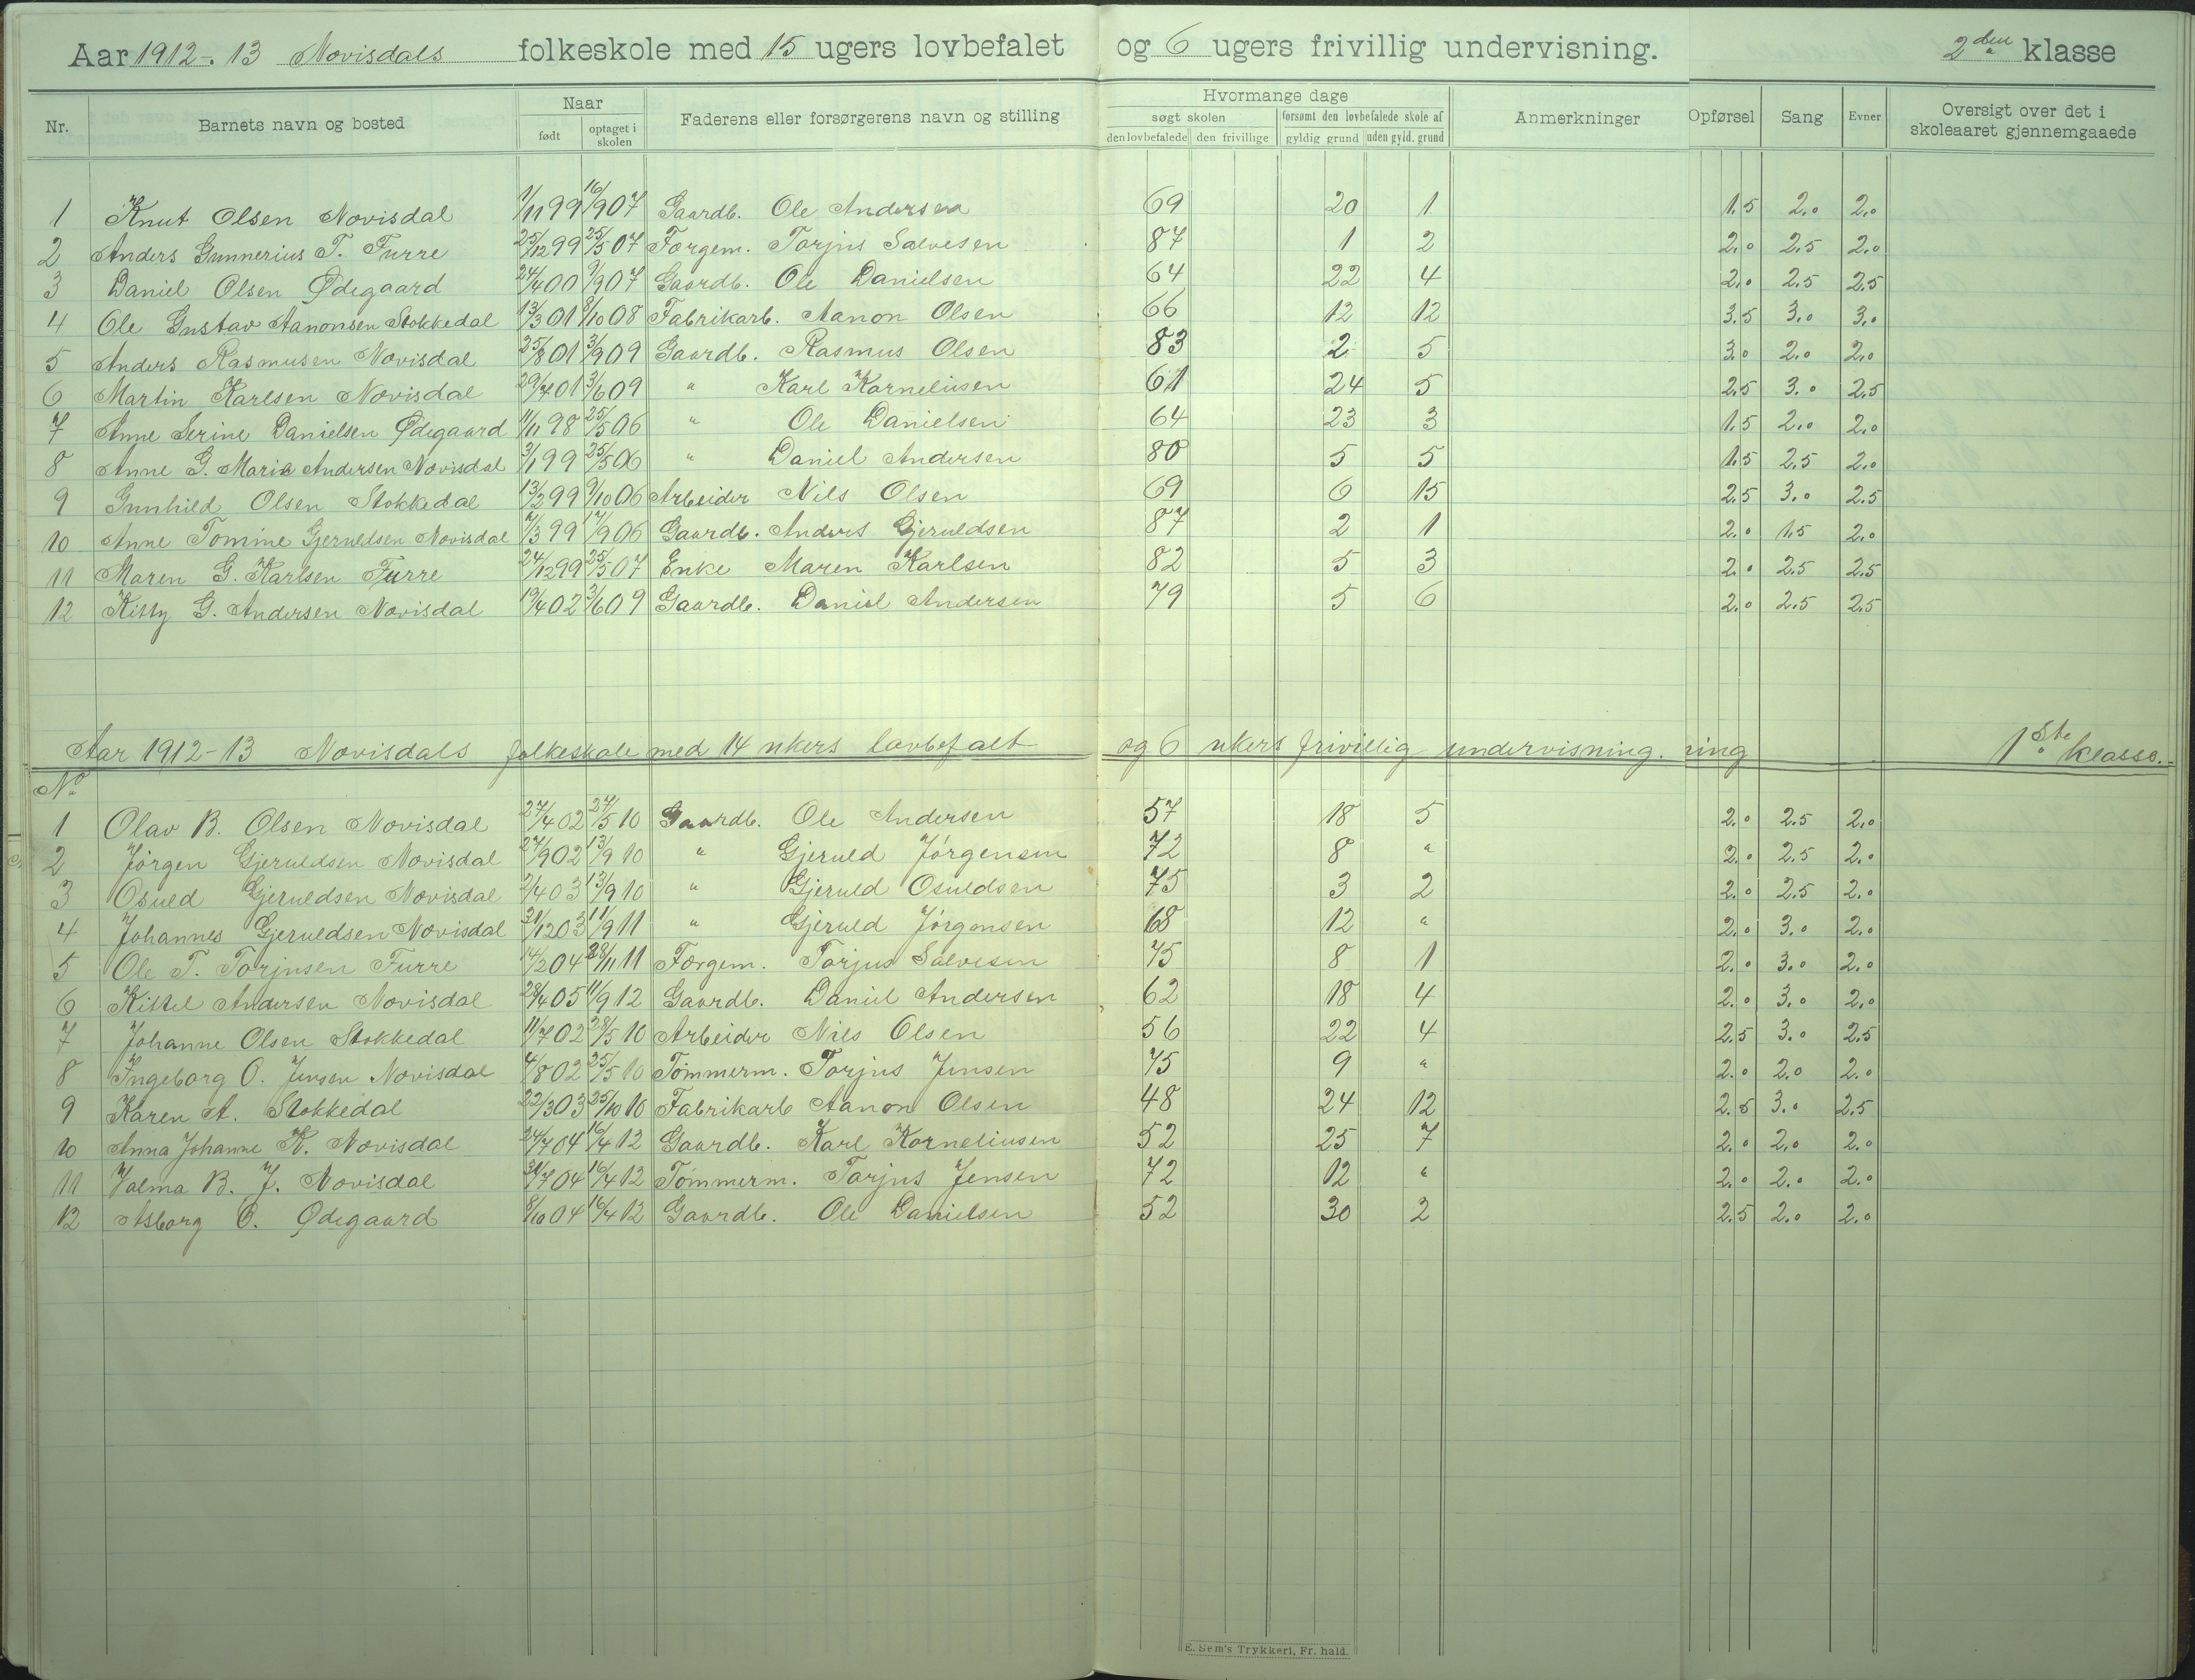 Aar 1912-13 Novisdals folkeskole med 15 ugers lovbefalet og 6 ugers frivillig undervisning. 2den klasse
Nr. Barnets navn og bosted Naar Faderens eller forsørgerens navn og stilling Hvormange dage Anmerkninger Opførsel Sang Evner Oversigt over det i skoleaaret gjennemgaaede
født optaget i skolen søgt skolen forsømt den lovbefalede skole af
den lovbefalede den frivillige gyldig grund uden gyld. grund
1 Knut Olsen Novisdal 1/11 99 16/9 07 Gaardb. Ole Andersen 69 20 1 1.5 2.0 2.0
2 Anders Gunnerius T. Furre 25/12 99 25/5 07 Forgem. Torjus Salvesen 87 1 2 2.0 2.5 2.0
3 Daniel Olsen Ødegaard 24/4 00 9/9 07 Gaardb. Ole Danielsen 64 22 4 2.0 2.5 2.5
4 Ole Gustav Aanonsen Stokkedal 13/3 01 8/10 08 Fabrikarb. Aanon Olsen 66 12 12 3.5 3.0 3.0
5 Anders Rasmusen Novisdal 25/8 01 3/9 09 Gaardb. Rasmus Olsen 83 2 5 3.0 2.0 2.0
6 Martin Karlsen Novisdal 29/7 01 3/6 09 " Karl Korneliusen 61 24 5 2.5 3.0 2.5
7 Anne Serine Danielsen Ødegaard 11/11 98 25/5 06 " Ole Danielsen 64 23 3 1.5 2.0 2.0
8 Anne G. Maria Andersen Novisdal 3/1 99 25/5 06 " Daniel Andersen 80 5 5 1.5 2.5 2.0
9 Gunhild Olsen Stokkedal 13/2 99 9/10 06 Arbeider Nils Olsen 69 6 15 2.5 3.0 2.5
10 Anne Tomine Gjeruldsen Novisdal 7/3 99 17/9 06 Gaardb. Anders Gjeruldsen 87 2 1 2.0 1.5 2.0
11 Maren G. Karlsen Furre 24/12 99 25/5 07 Enke Maren Karlsen 82 5 3 2.0 2.5 2.5
12 Kitty G. Andersen Novisdal 19/4 02 3/6 09 Gaardb. Daniel Andersen 79 5 6 2.0 2.5 2.5
Aar 1912-13 Novisdals folkeskole med 14 ukers lovbefalt og 6 ukers frivillig undervisning. ning 1ste klasse.
No
1 Olav B. Olsen Novisdal 27/4 02 27/5 10 Gaardb. Ole Andersen 57 18 5 2.0 2.5 2.0
2 Jörgen Gjeruldsen Novisdal 27/9 02 13/9 10 " Gjeruld Jörgensen 72 8 " 2.0 2.5 2.0
3 Osuld Gjeruldsen Novisdal 2/4 03 13/9 10 " Gjeruld Osuldsen 75 3 2 2.0 2.5 2.0
4 Johannes Gjeruldsen Novisdal 31/12 03 11/9 11 " Gjeruld Jörgensen 68 12 " 2.0 3.0 2.0
5 Ole T. Torjusen Furre 14/2 04 28/11 11 Forgem. Torjus Salvesen 75 8 1 2.0 3.0 2.0
6 Kittel Andersen Novisdal 28/4 05 11/9 12 Gaardb. Daniel Andersen 62 18 4 2.0 3.0 2.0
7 Johanne Olsen Stokkedal 11/7 02 28/5 10 Arbeider Nils Olsen 56 22 4 2.5 3.0 2.5
8 Ingeborg O. Jensen Novisdal 4/8 02 25/5 10 Tömmerm. Torjus Jensen 75 9 " 2.0 2.0 2.0
9 Karen A. Stokkedal 22/3 03 25/10 10 Fabrikarb Aanon Olsen 48 24 12 2.5 3.0 2.5
10 Anna Johanne K. Novisdal 24/7 04 16/4 12 Gaardb. Karl Korneliusen 52 25 7 2.0 2.0 2.0
11 Valma B. J. Novisdal 31/7 04 16/4 12 Tömmerm. Torjus Jensen 72 12 " 2.0 2.0 2.0
12 Asborg O. Ødegaard 8/10 04 16/4 12 Gaardb. Ole Danielsen 52 30 2 2.5 2.0 2.0
E. Sem's Trykkeri, Fr. hald.